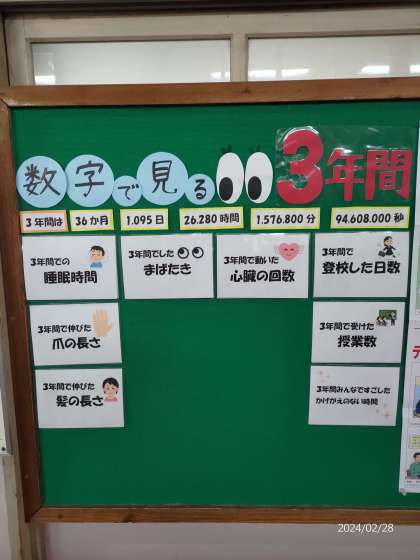 数字で見る3年間
3年間は 36か月 1.095日 26.280時間 1.576.800分 94.608.000秒
3年間での
睡眠時間
3年間でした
まばたき
3年間で動いた
心臓の回数
3年間で
登校した日数
3年間で伸びた
爪の長さ
3年間で受けた
授業数
3年間で伸びた
髪の長さ
3年間みんなですごした
かけがえのない時間
2024/02/28